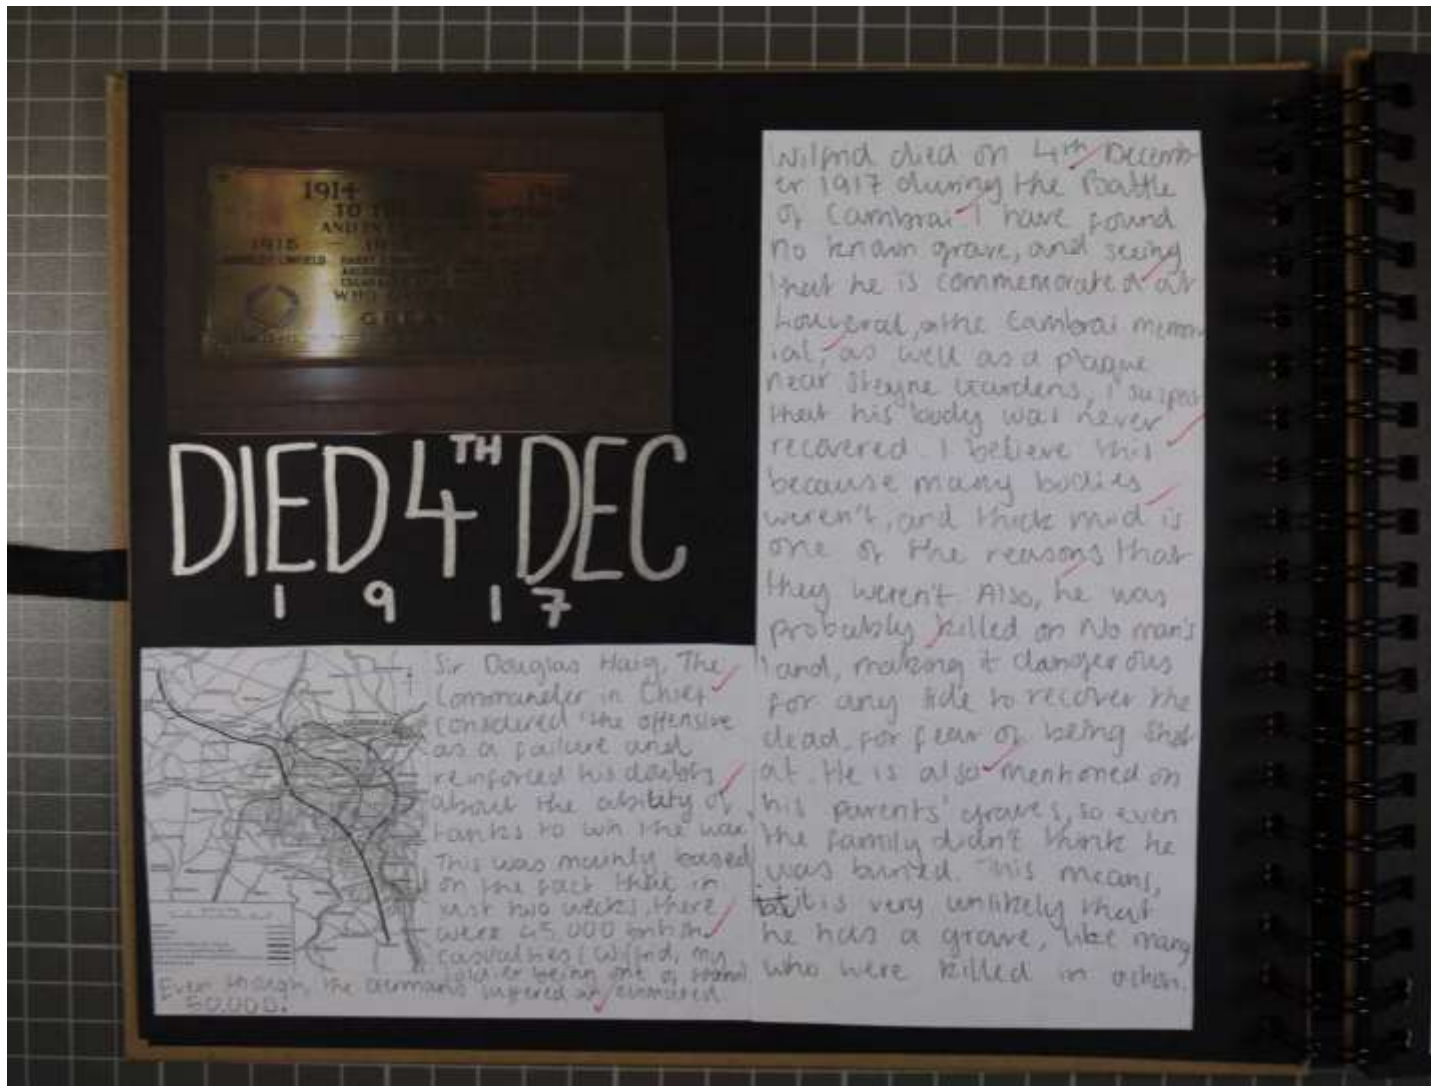 1914
TO THE
AND IN
1915
LINFIELD HARRY
WHO
GREAT
DIED 4TH DEC
1917
Sir Douglas Haig, The
Commander in Chief
considered the offensive
as a failure and
reinforced his doubts
about the ability of
tanks to win the war.
This was mainly based
on the fact that in
just two weeks, there
were 45,000 british
casualties (Wilfrid, my
soldier being one of them)
Even though, the Germans suffered an estimated
50,000.
Wilfrid died on 4th Decemb-
er 1917 during the Battle
of Cambrai I have found
no known grave, and seeing
that he is commemorated at
Louveral, the Cambrai memor
ial, as well as a plaque
near Steyne Gardens, I suspect
that his body was never
recovered. I believe this
because many bodies
weren't, and thick mud is
one of the reasons that
they weren't. Also, he was
probably killed on No man's
land, making it dangerous
for any side to recover the
dead, for fear of being shot
at. He is also mentioned on
his parents' graves, so even
the family didn't think he
was buried. This means,
it is very unlikely that
he has a grave, like many
who were killed in action.